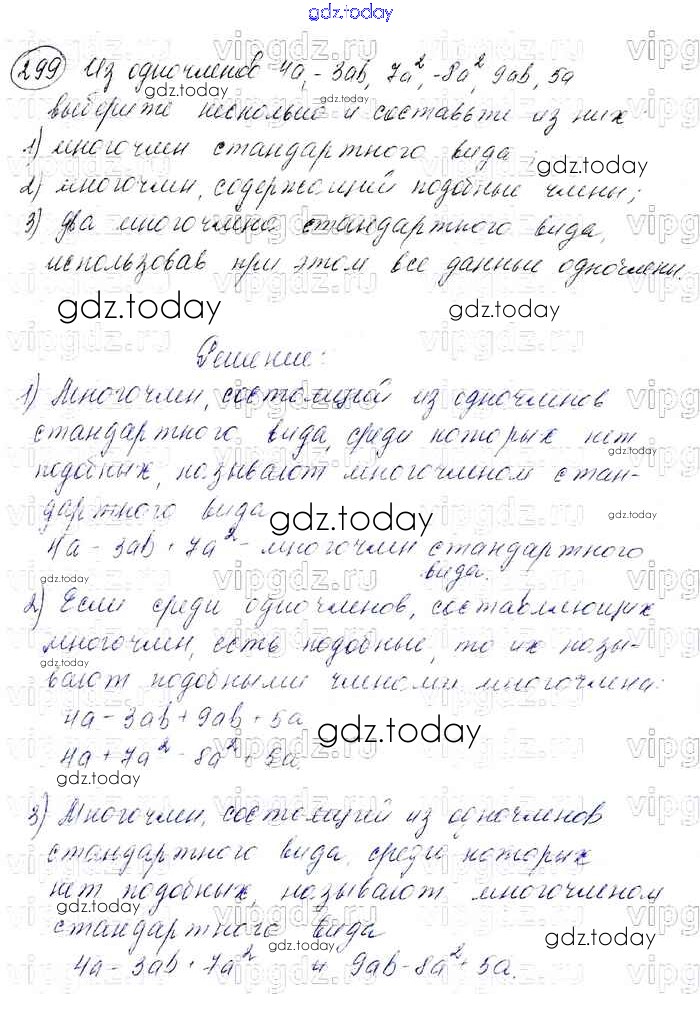 gdz.today
299 Из одночленов 4a, -3ab, 7a², -8a², 9ab, 5a
выберите несколько и составьте из них
1) многочлен стандартного вида;
2) многочлен, содержащий подобные члены;
3) два многочлена стандартного вида,
использовав при этом все данные одночлены.
gdz.today
Решение:
1) Многочлен, состоящий из одночленов
стандартного вида, среди которых нет
подобных, называют многочленом стан-
дартного вида
gdz.today
4a - 3ab + 7a² - многочлен стандартного
вида.
2) Если среди одночленов, составляющих
многочлен, есть подобные, то их назы-
вают подобными членами многочлена:
4a - 3ab + 9ab + 5a
4a + 7a² - 8a² + 5a.
gdz.today
3) Многочлен, состоящий из одночленов
стандартного вида, среди которых
нет подобных, называют многочленом
стандартного вида
gdz.today
4a - 3ab + 7a² и 9ab - 8a² + 5a.
vipgdz.ru